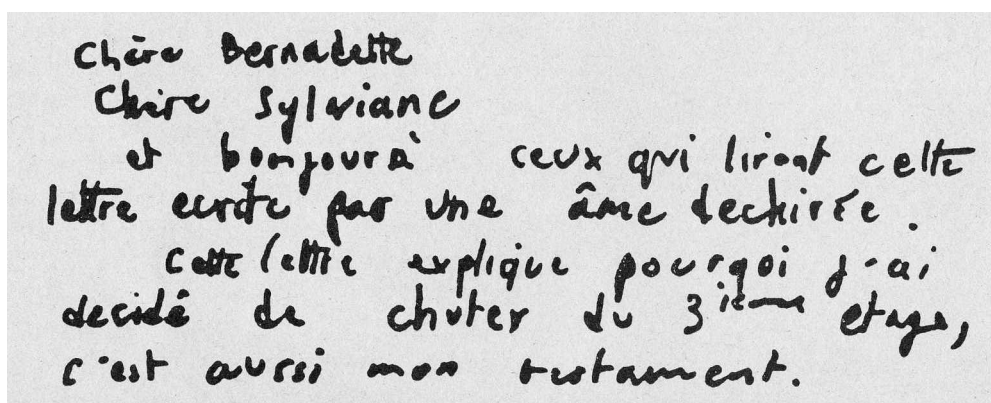 Chère Bernadette
Chère Sylviane
et bonjour à ceux qui liront cette
lettre ecrite par une âme dechirée.
Cette lettre explique pourqoi j'ai
decidé de chuter du 3ieme etage,
c'est aussi mon testament.